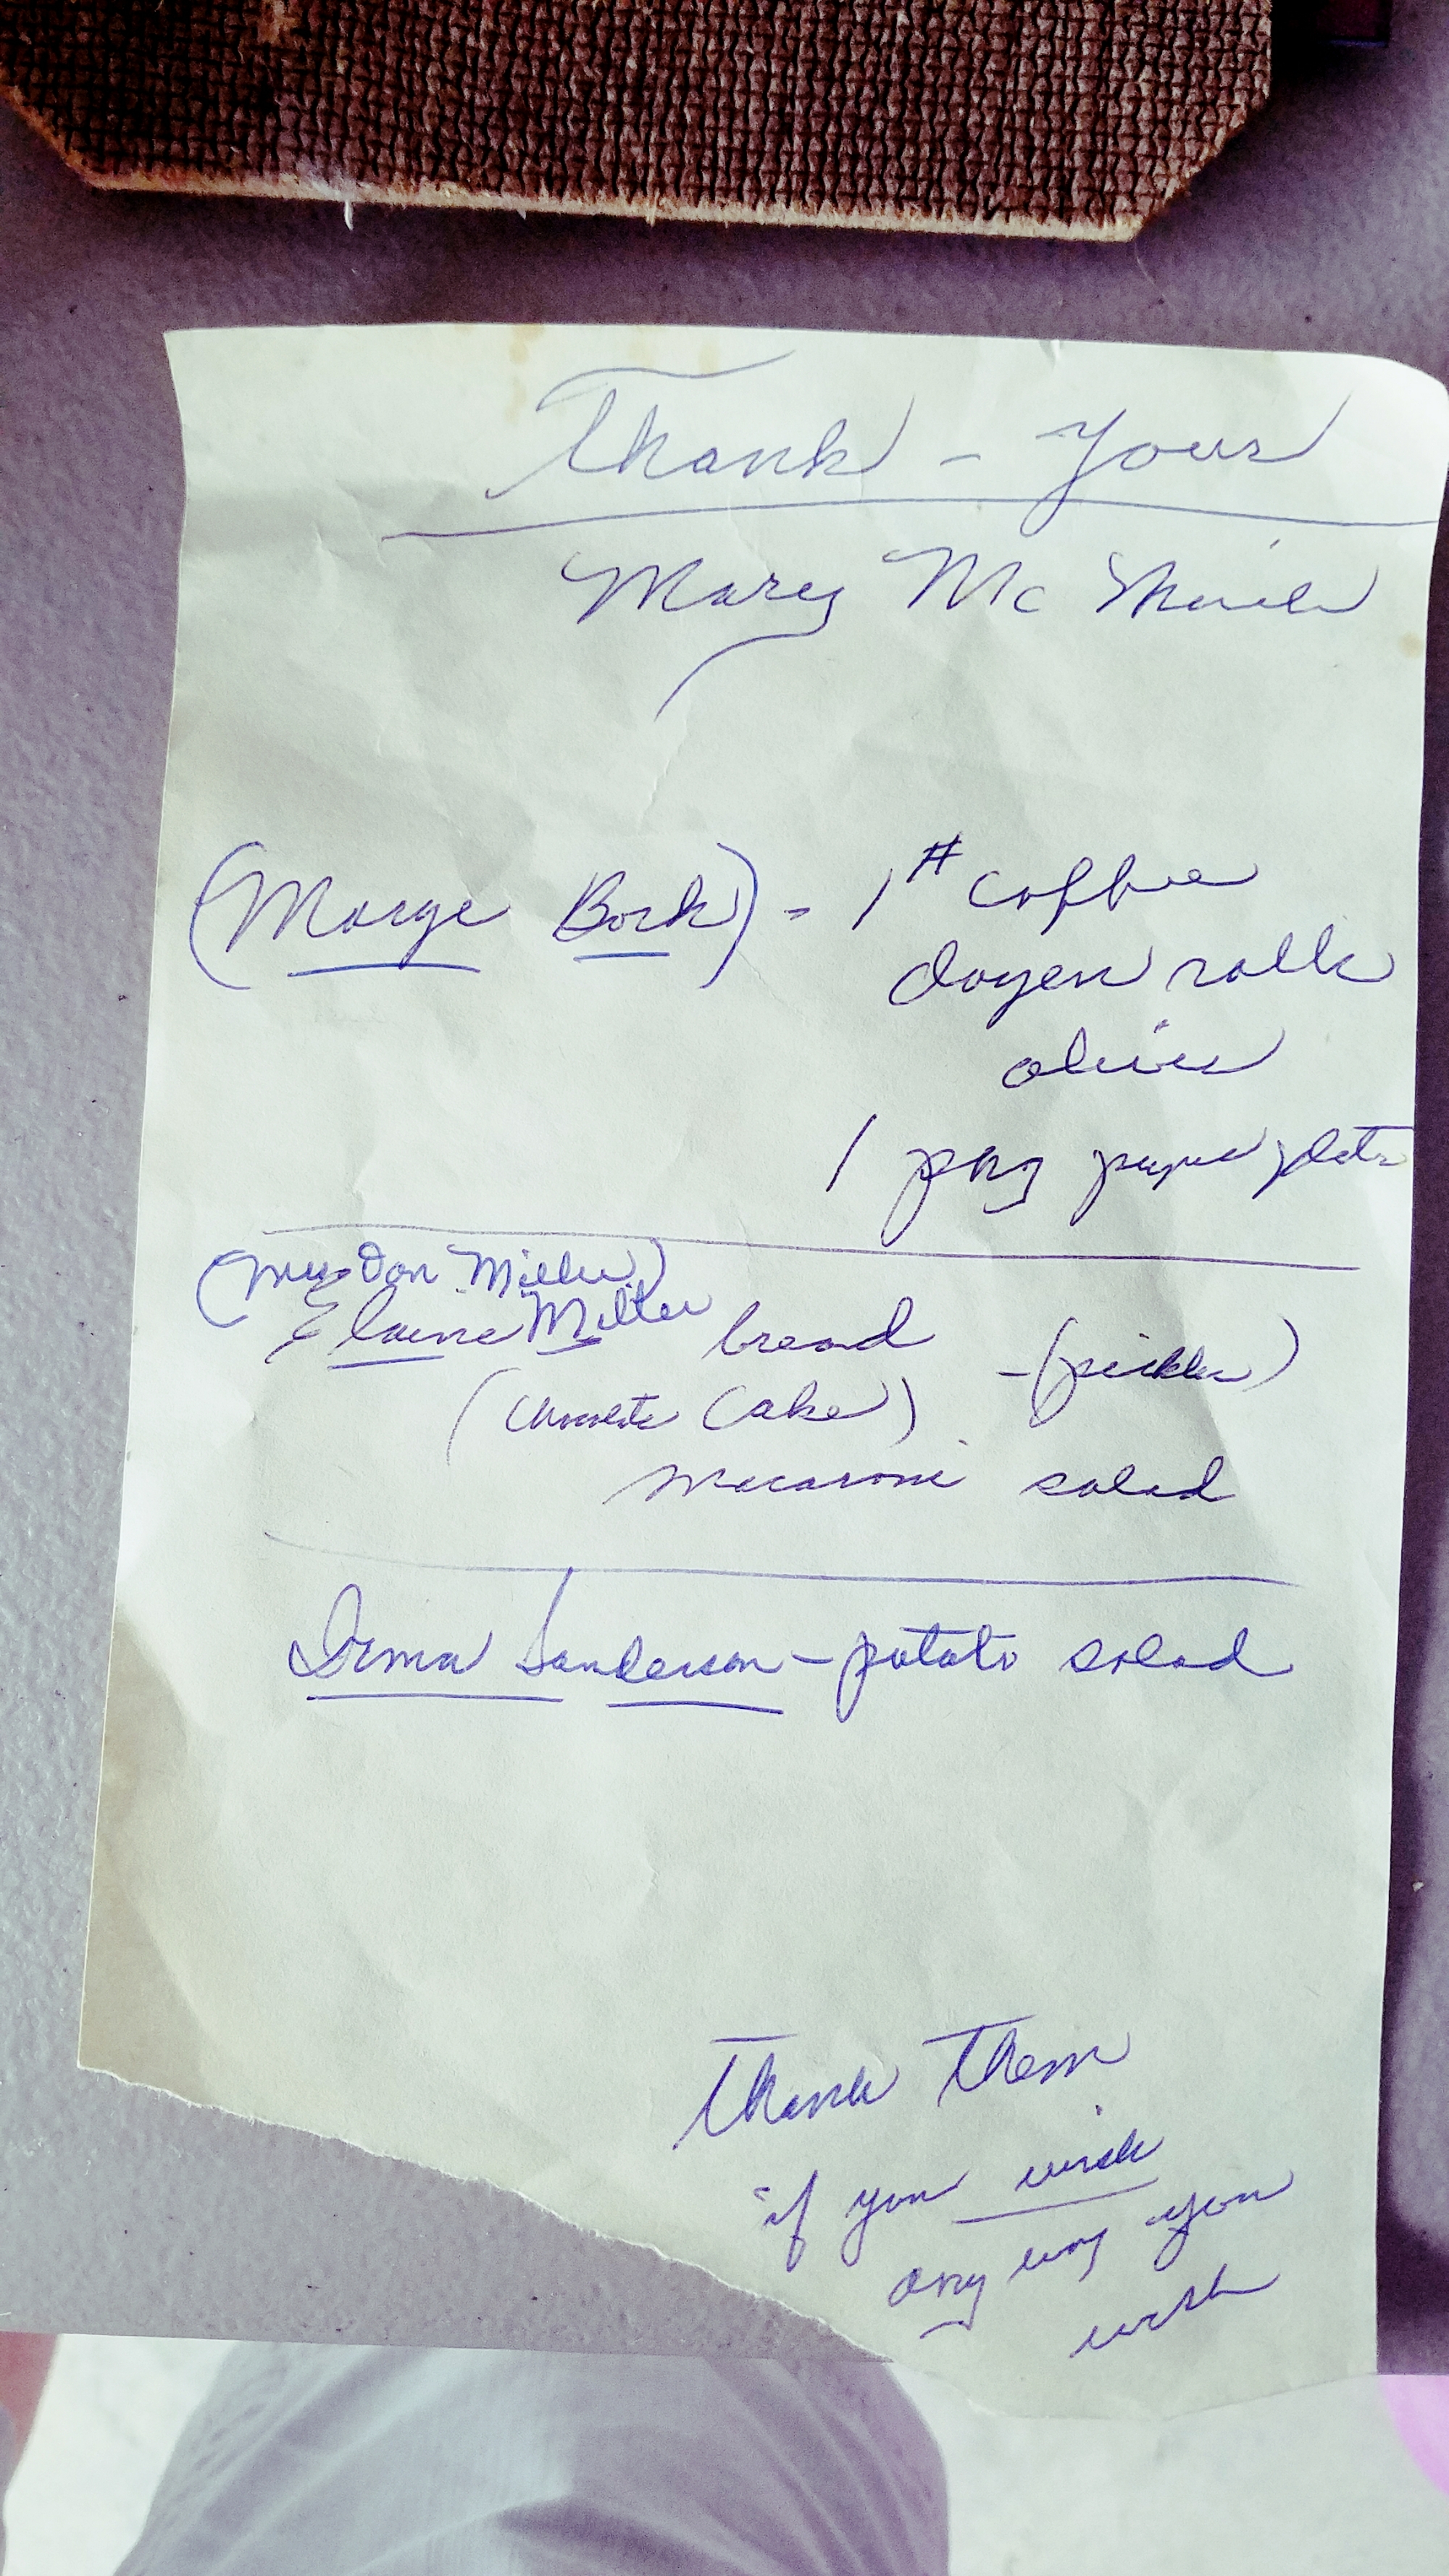 Thank - Yous
Mary Mc
(Marge Bork) - 1# coffee
dozen rolls
olives
1 pkg paper plates
(Mrs Don Miller)
Elaine Miller bread - (pickles)
(Chocolate Cake)
macaroni salad
Sanderson - potato salad
Thank Them
if you wish
any way you
wish